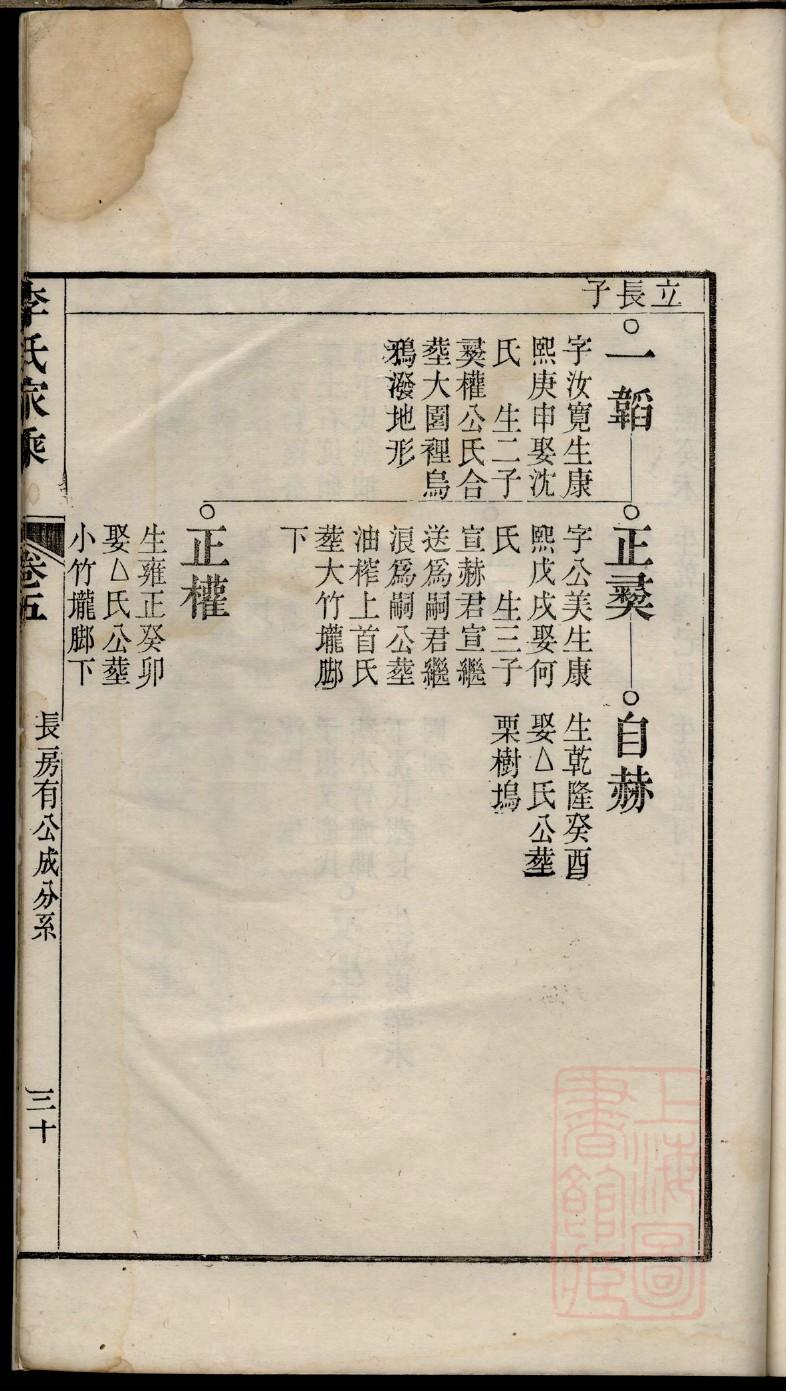 立長子
一韜
字汝寬生康
熙庚申娶沈
氏　生二子
彛權公氏合
塟大園裡烏
鴉潑地形
正彛
字公美生康
熙戊戌娶何
氏　生三子
宣赫君宣繼
送爲嗣君繼
浪爲嗣公塟
油榨上首氏
塟大竹壠脚
下
自赫
生乾隆癸酉
娶△氏公塟
栗樹塢
正權
生雍正癸卯
娶△氏公塟
小竹壠脚下
李氏家乘
卷五
長房有公成分系
三十
上海圖
書館